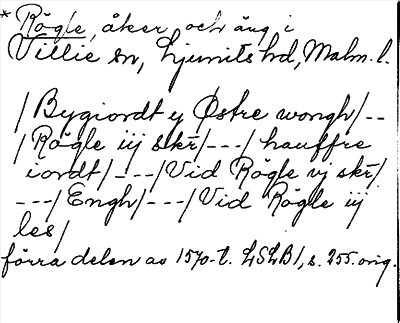 * Rögle, åker och äng i
Villie sn, Ljunits hd, Malm. l.
/Bygiordt y Østre wongh/--
/Rögle iij skr̄/---/hauffre
iordt/---/Vid Rögle vj skr̄/
---/Engh/---/Vid Rögle iij
les/
förra delen av 1570-t. LSLB1, s. 255. orig.